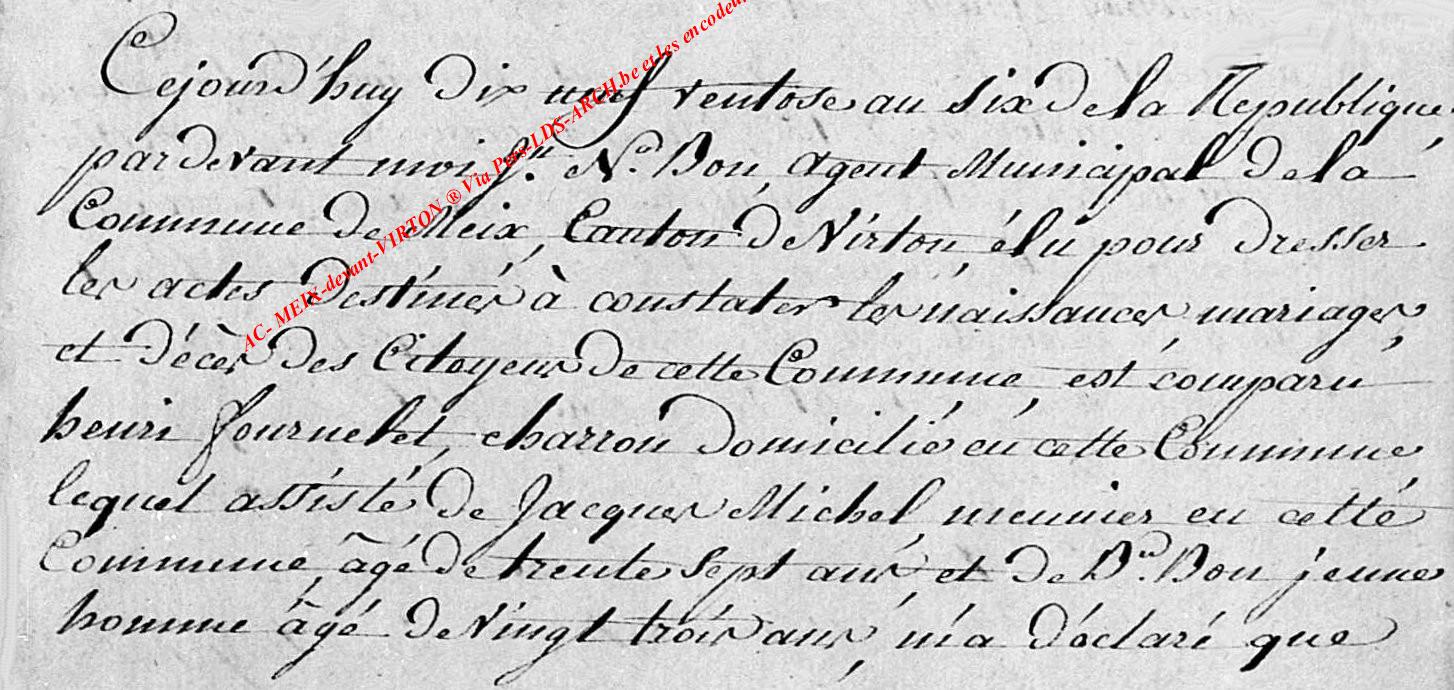 Cejourd'huy dix neuf ventose an six de la Republique,
pardevant moi J.n N.s Bon, agent Municipal de la
Commune de Meix, Canton de Virton, élu pour dresser
les actes destinés à constater les naissances, mariages,
et décès des Citoyens de cette Commune, est comparu
henri fournelet, charron domicilié en cette Commune
lequel assisté de Jacques Michel, meunier en cette
Commune, âgé de trente sept ans, et de Bon jeune
homme âgé de Vingt trois ans, m'a déclaré que
AC- MEIX-devant-VIRTON ® Via Pers-LDS-ARCH.be et les encodeu